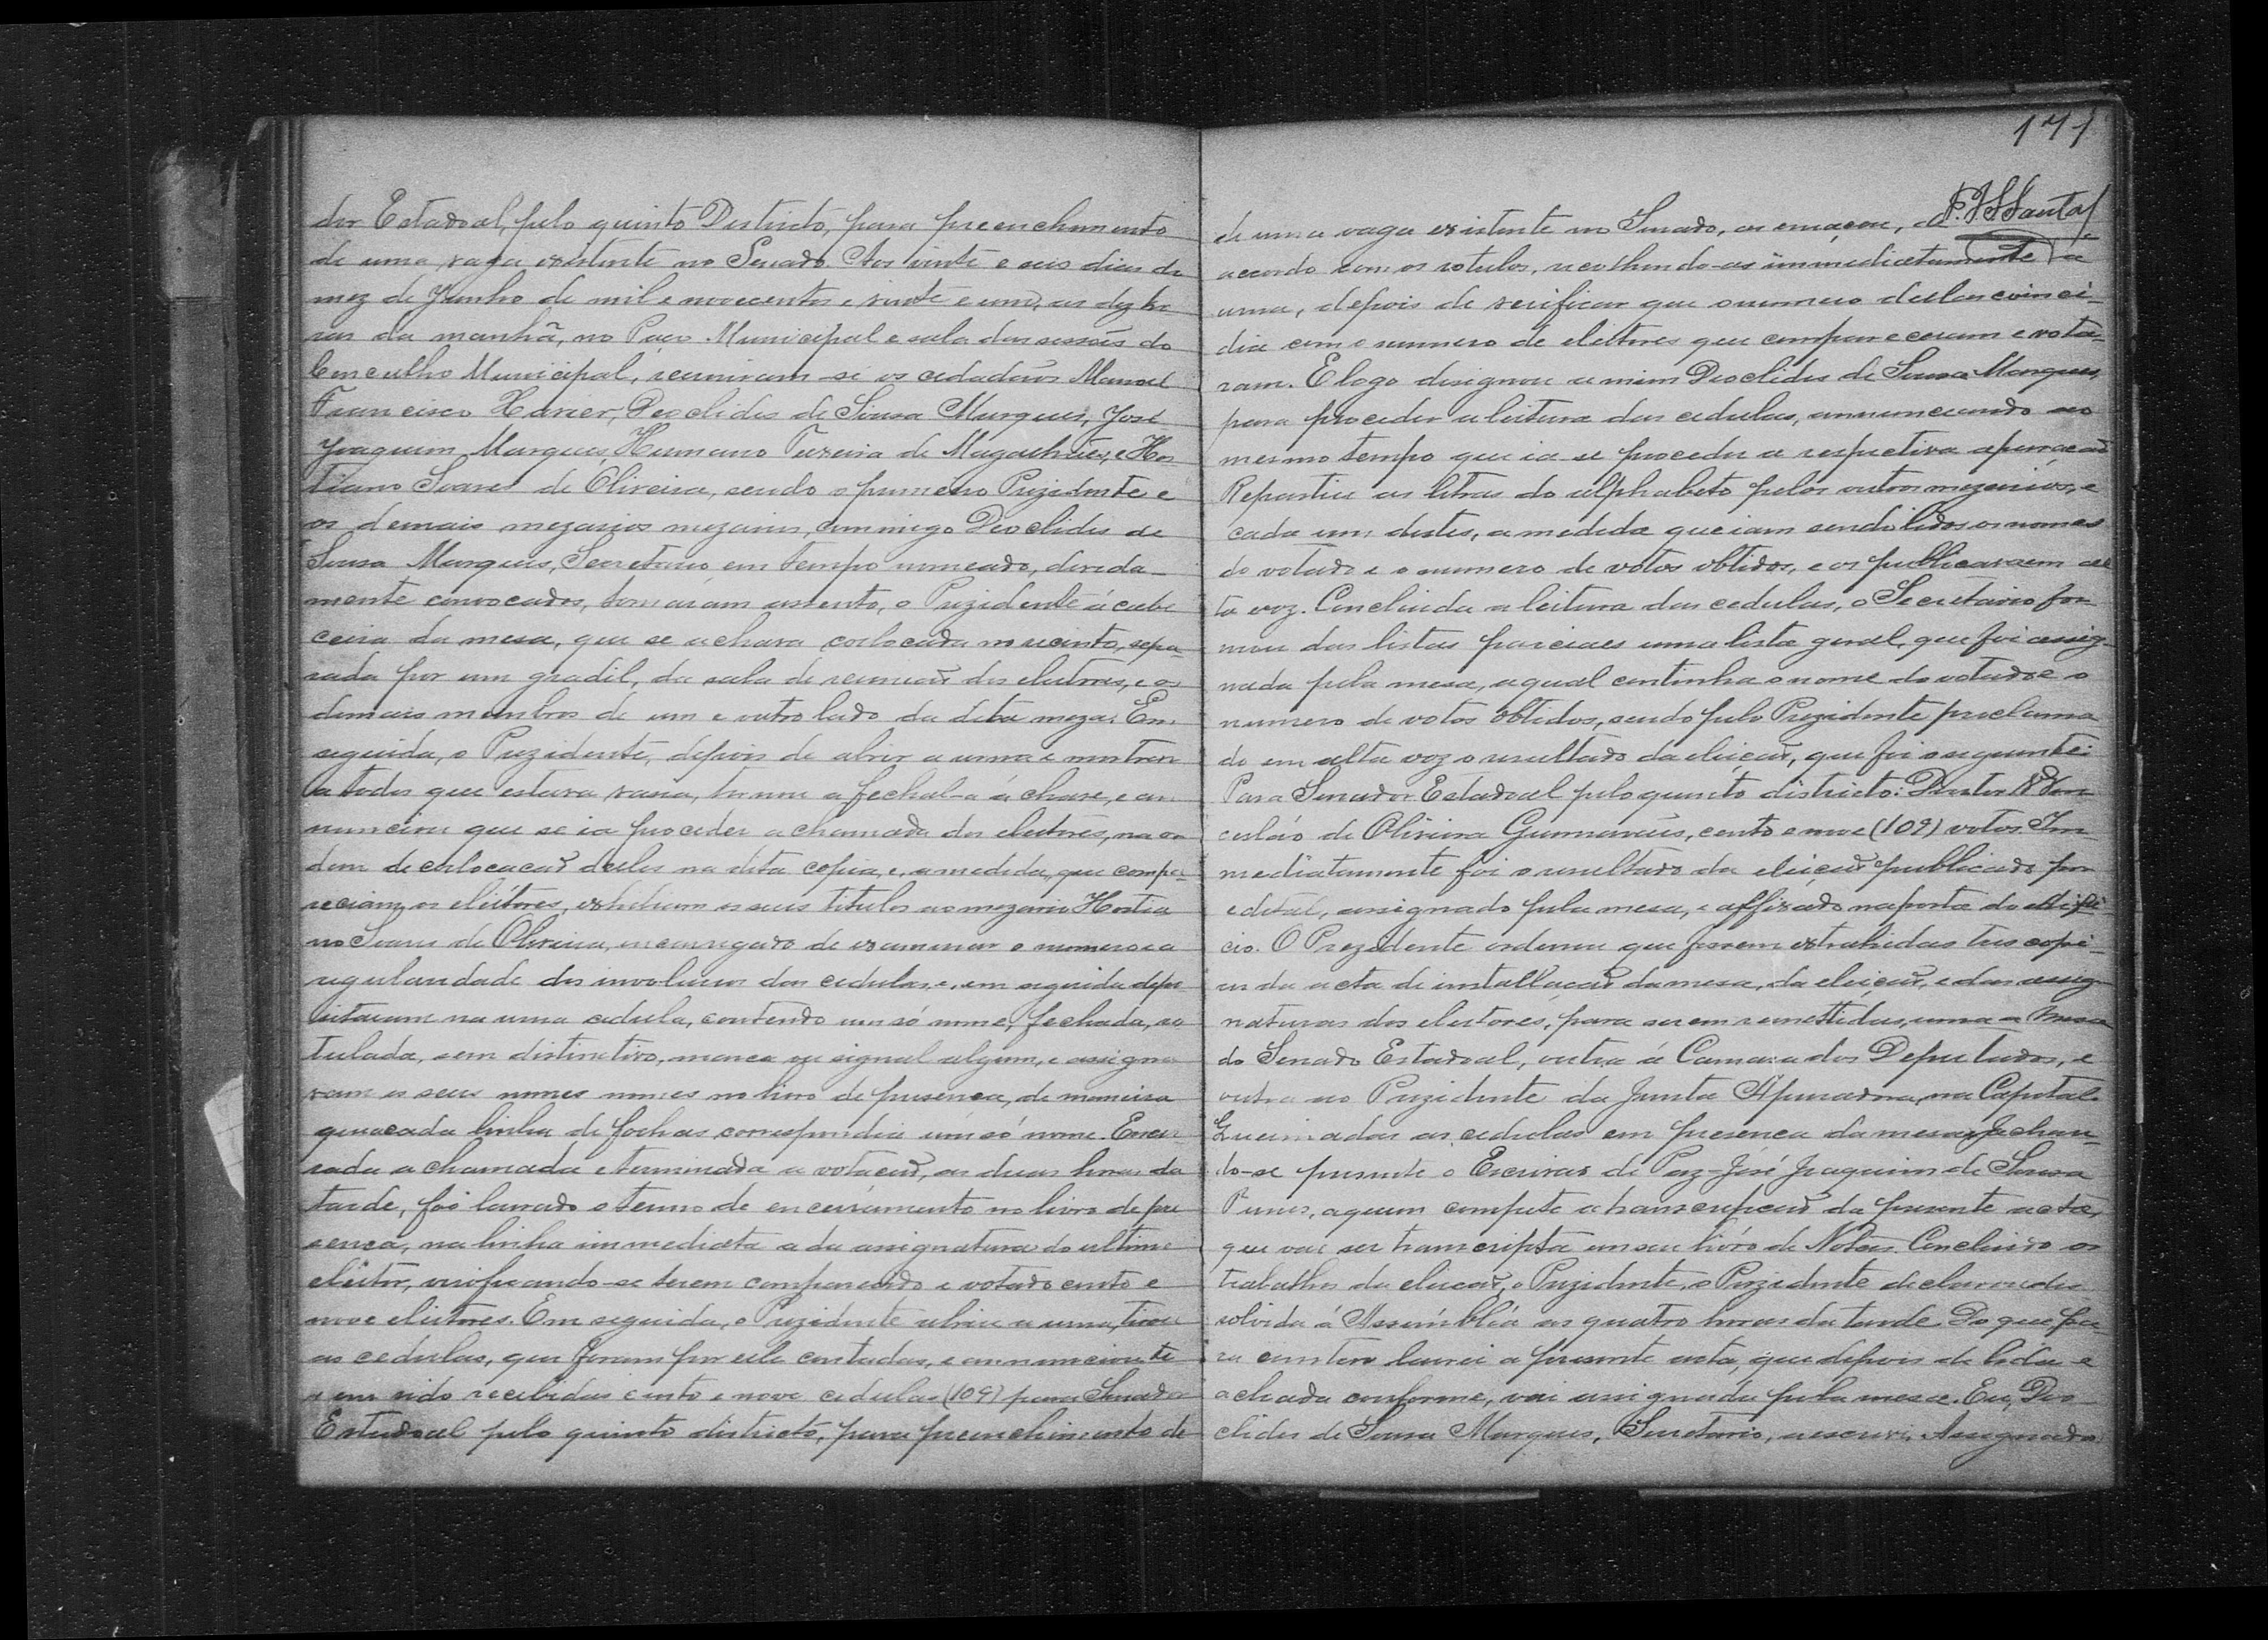 dor Estadoal, pelo quinto Districto, para preenchimento
de uma vaga existente no Senado. Aos vinte e seis dias do
mez de Junho de mil e novecentos e vinte e um, as dez ho
ras da manhã, no Paço Municipal e sala das sessões do
Concelho Municipal, reuniram-se os cidadãos Manoel
Francisco Xavier, Deoclides de Sousa Marques, José
Joaquim Marques, Humano Teixeira de Magalhães, e Hos
tiano Soares de Oliveira, sendo o primeiro Prezidente e
os demais mezarios mezarios, commigo Deoclides de
Sousa Marques, Secretario, em tempo nomeado, devida-
mente convocados, tomaram assento, o Prezidente á cabe
ceira da mesa, que se achava collocada no recinto, sepa-
rada por um gradil, da sala de reunião dos eleitores, e os
demais membros de um e outro lado da dita meza. Em
seguida, o Prezidente, depois de abrir a urna e mostrar
a todos que estava vasia, tornou a fechal-a á chave, e an
nunciou que se ia proceder a chamada dos eleitores, na or
dem de collocação delles na dita copia, e, a medida, que compa-
reciam os eleitores, exhibiam os seus titulos ao mezario Hostia
no Soares de Oliveira, encarregado de examinar o numero e a
regularidade dos involucros das cedulas, e, em seguida depo
sitavam na urna cedula, contendo um só nome, fechada, ro
tulada, sem distinctivo, marca ou signal algum, e assigna
vam os seus nomes nomes no livro de presença, de maneira
que a cada linha de fochas correspondia um só nome. Encer-
rada a chamada e terminada a votação, as duas horas da
tarde, foi lavrado o termo de encerramento no livro de pre
sença, na linha immediata a da assignatura do ultimo
eleitor, verificando-se terem comparecido e votado cento e
nove eleitores. Em seguida, o Prezidente abriu a urna, tirou
as cedulas, que foram por elle contadas, e annunciou te
rem sido recebidas cento e nove cedulas (109) para Senador
Estadoal pelo quinto districto, para preenchimento de
171
P. J. S. Santos
de uma vaga existente no Senado, as emaçou, de
accordo com os rotulos, recolhendo-as immediatamente a
urna, depois de verificar que o numero dellas coinci-
dia com o numero de eleitores que compareceram e vota-
ram. E logo designou a mim Deoclides de Sousa Marques,
para proceder a leitura das cedulas, annunciando ao
mesmo tempo que ia se proceder a respectiva apuração
Repartiu as letras do alphabeto pelos outros mezarios, e
cada um destes, a medida que iam sendo lidos os nomes
do votado e o numero de votos obtidos, e os publicavam em al
ta voz. Concluida a leitura das cedulas, o Secretario for
mou das listas parciaes uma lista geral, que foi assig-
nada pela mesa, a qual continha o nome do votado e o
numero de votos obtidos, sendo pelo Prezidente proclama
do em alta voz o resultado da eleição, que foi o seguinte:
Para Senador Estadoal pelo quinto districto: Doutor Wen
ceslão de Oliveira Guimarães, cento e nove (109) votos. Im
mediatamente foi o resultado da eleição publicado por
edital, assignado pela mesa, e affixado na porta do edifi-
cio. O Prezidente ordenou que fossem extrahidas tres copi-
as da acta de installação da mesa, da eleição, e das assig
naturas dos eleitores, para serem remettidas, uma a Mesa
do Senado Estadoal, outra á Camara dos Deputados, e
outra ao Prezidente da Junta Apuradora, na Capital.
Queimadas as cedulas em presença da mesa, e achan-
do-se presente o Escrivão de Paz-José Joaquim de Sousa
Pires, a quem compete a transcripção da presente acta,
que vai ser transcripta em seu livro de Notas. Concluido os
trabalhos da eleição, o Prezidente, o Prezidente declarou dis
solvida á Assembléa as quatro horas da tarde. Do que pa-
ra constar lavrei a presente acta, que depois de lida e
achada conforme, vai assignada pela mesa. Eu, Deo
clides de Sousa Marques, Secretario, a escrevi. Assignado